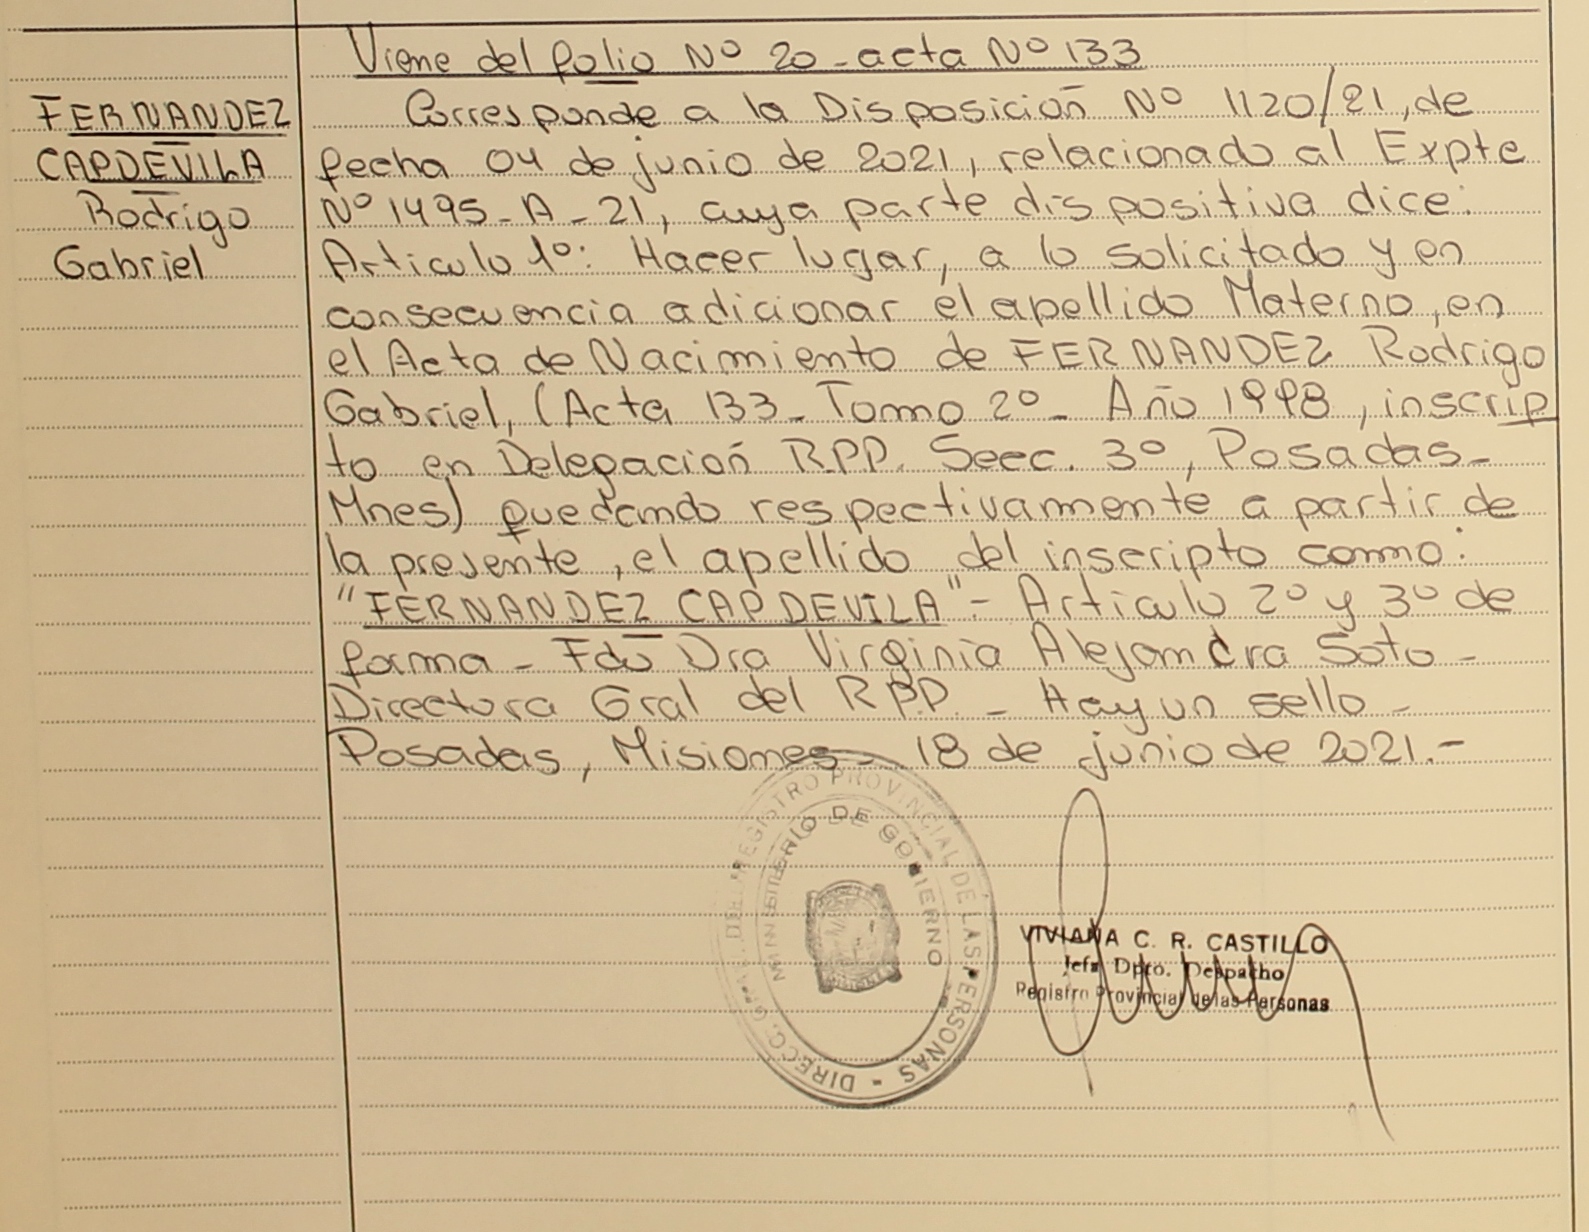 Viene del folio Nº 20 - acta Nº 133
FERNANDEZ
CAPDEVILA
Rodrigo
Gabriel
Corresponde a la Disposición Nº 1120/21, de
fecha 04 de junio de 2021, relacionado al Expte
Nº 1495-A-21, cuya parte dispositiva dice:
Articulo 1º: Hacer lugar, a lo solicitado y en
consecuencia adicionar el apellido Materno, en
el Acta de Nacimiento de FERNANDEZ Rodrigo
Gabriel, (Acta 133 - Tomo 2º - Año 1998, inscrip
to en Delegación R.P.P. Secc. 3º, Posadas -
Mnes) quedando respectivamente a partir de
la presente, el apellido del inscripto como:
"FERNANDEZ CAPDEVILA" - Articulo 2º y 3º de
forma - Fdo Dra Virginia Alejandra Soto -
Directora Gral del R.P.P. - Hay un sello -
Posadas, Misiones - 18 de junio de 2021.-
DIRECC. GRAL. DEL REGISTRO PROVINCIAL DE LAS PERSONAS -
MINISTERIO DE GOBIERNO
VIVIANA C. R. CASTILLO
Jefa Dpto. Despacho
Registro Provincial de las Personas